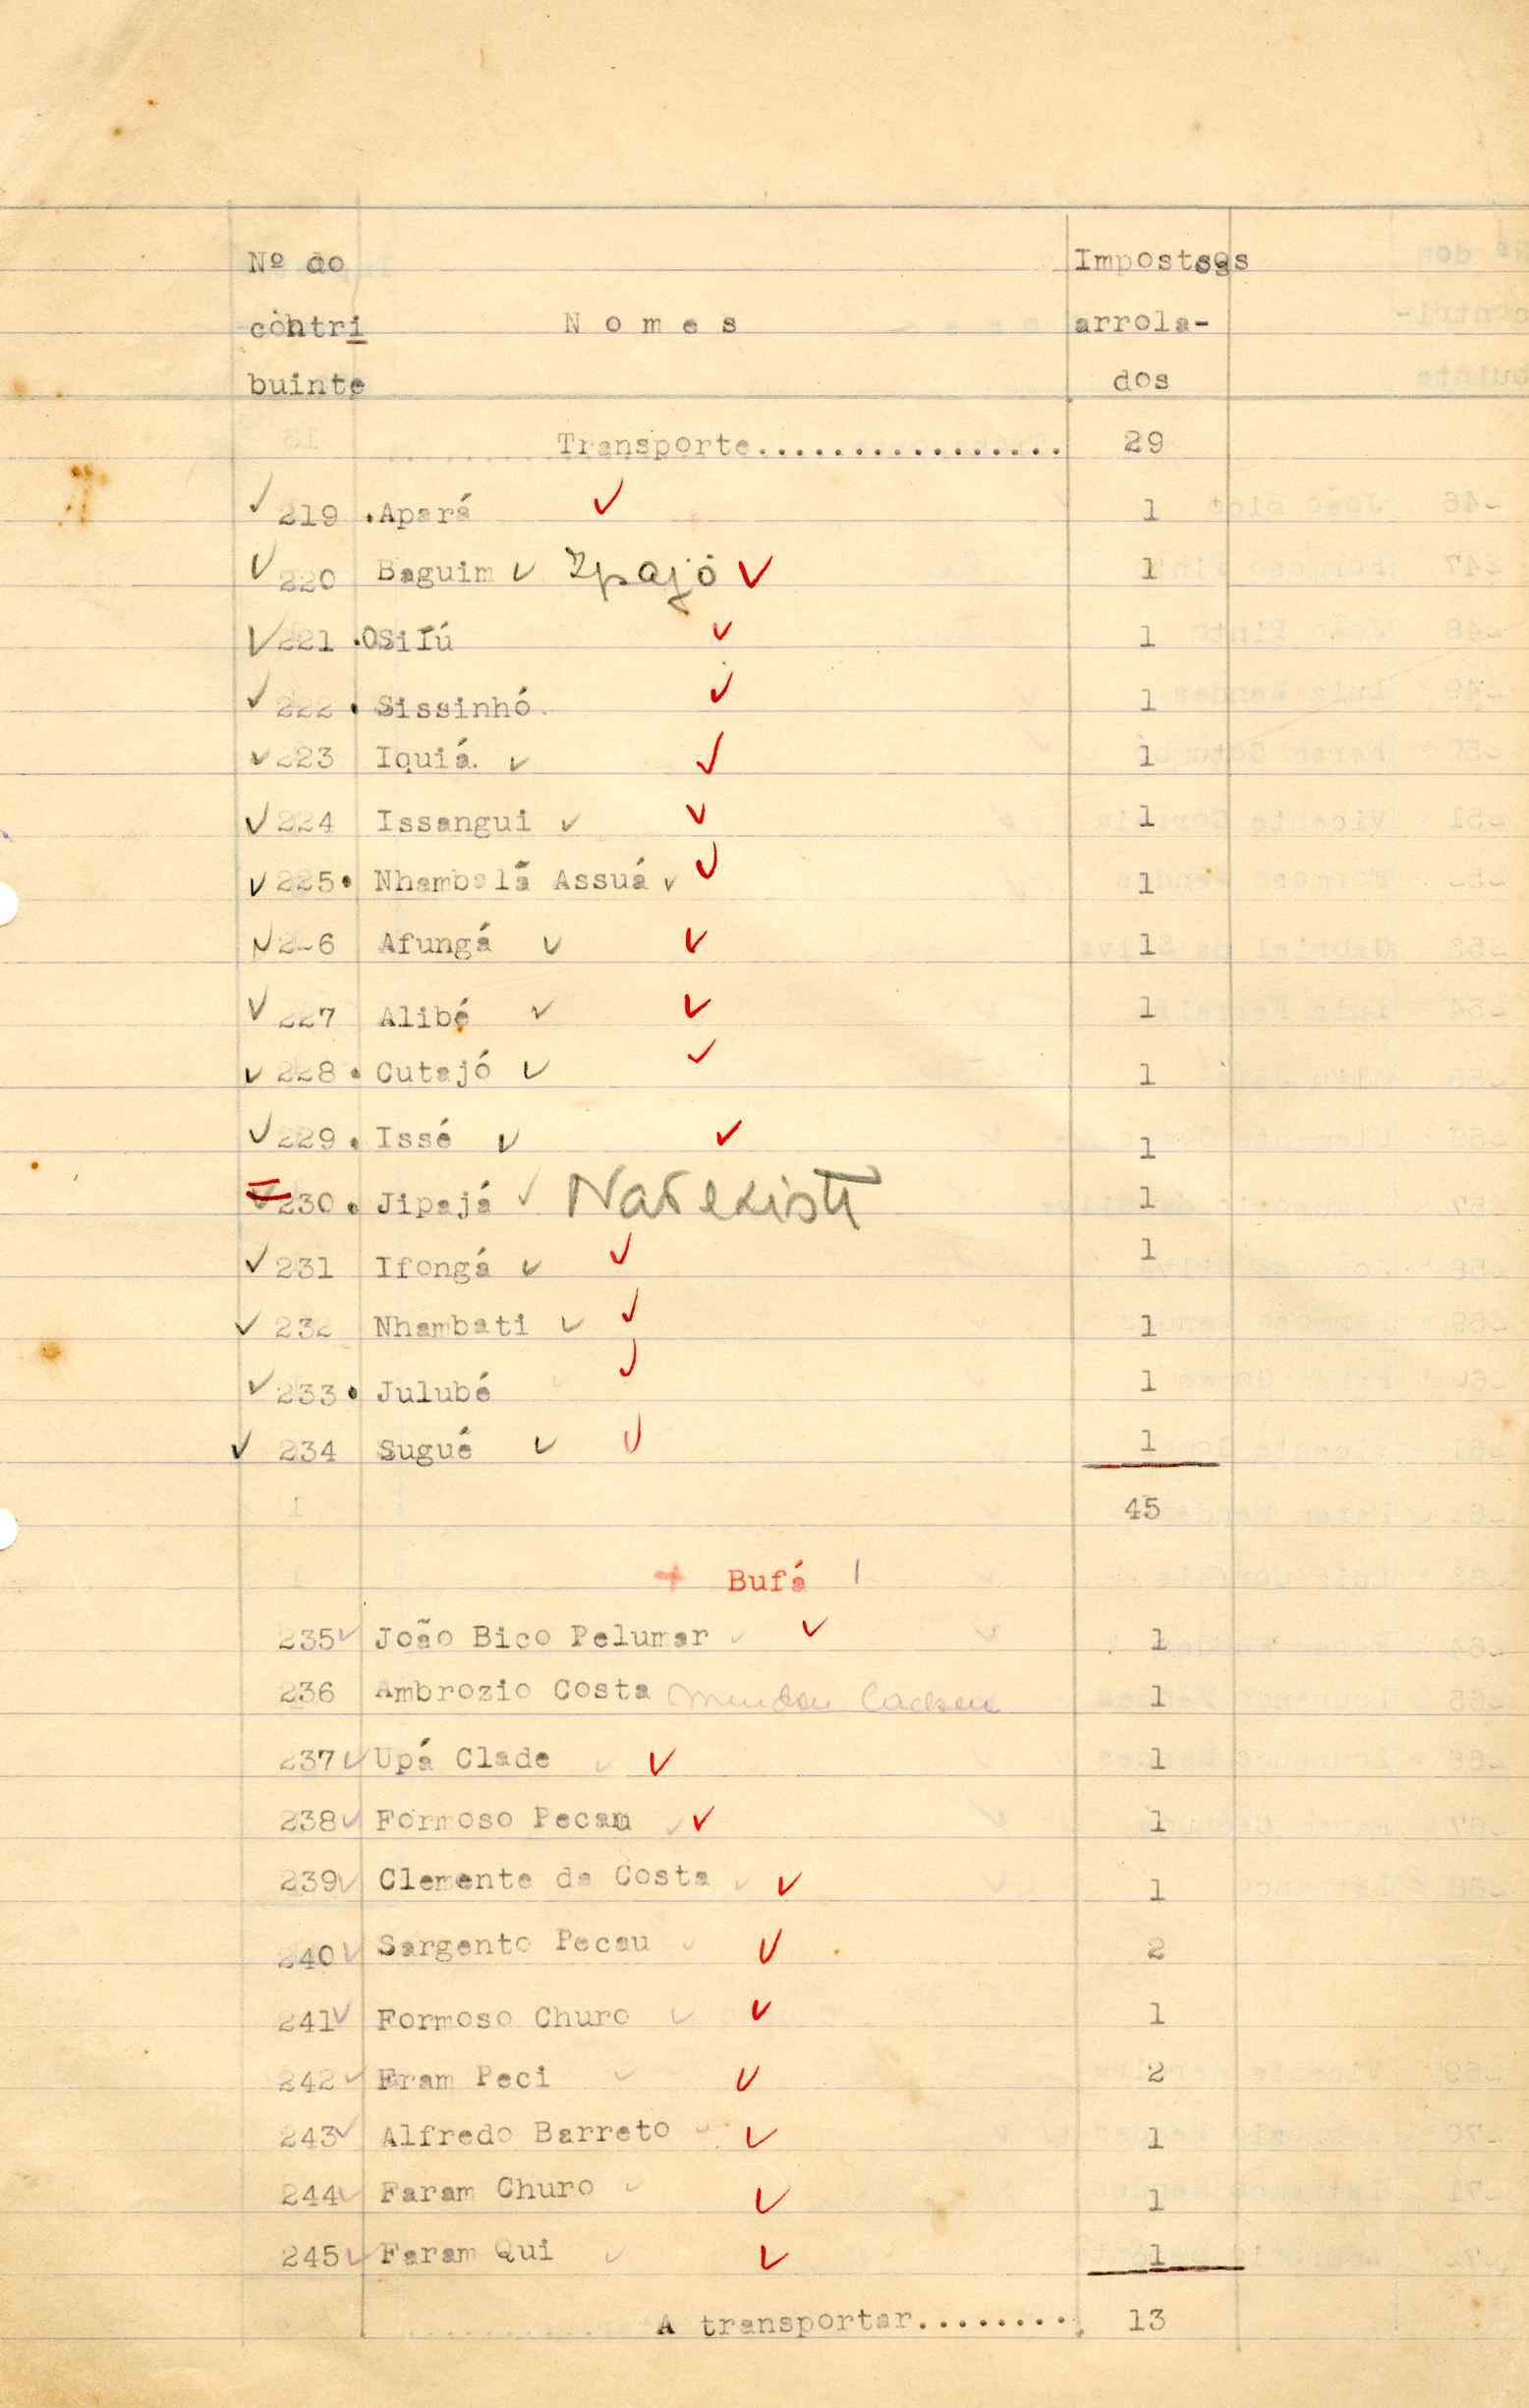 Nº do Impostos
contri N o m e s arrola-
buinte dos
Transporte................. 29
219 .Apará 1
220 Baguim Ipajó 1
221 .OSilú 1
222 . Sissinhó. 1
223 Iquiá. 1
224 Issangui 1
225. Nhambalã Assuá 1
226 Afungá 1
227 Alibé 1
228 . Cutajó 1
229 . Issé 1
230 . Jipajá Não existe 1
231 Ifongá 1
232 Nhambati 1
233 . Julubé 1
234 Sugué 1
45
+ Bufá
235 João Bico Pelumar 1
236 Ambrozio Costa 1
237 Upá Clade 1
238 Formoso Pecau 1
239 Clemente da Costa 1
240 Sargento Pecau 2
241 Formoso Churo 1
242 Eram Peci 2
243 Alfredo Barreto 1
244 Faram Churo 1
245 Faram Qui 1
A transportar......... 13